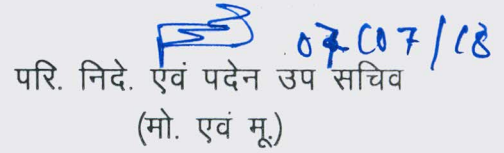 07/07/18
परि. निदे. एवं पदेन उप सचिव
(मो. एवं मू.)